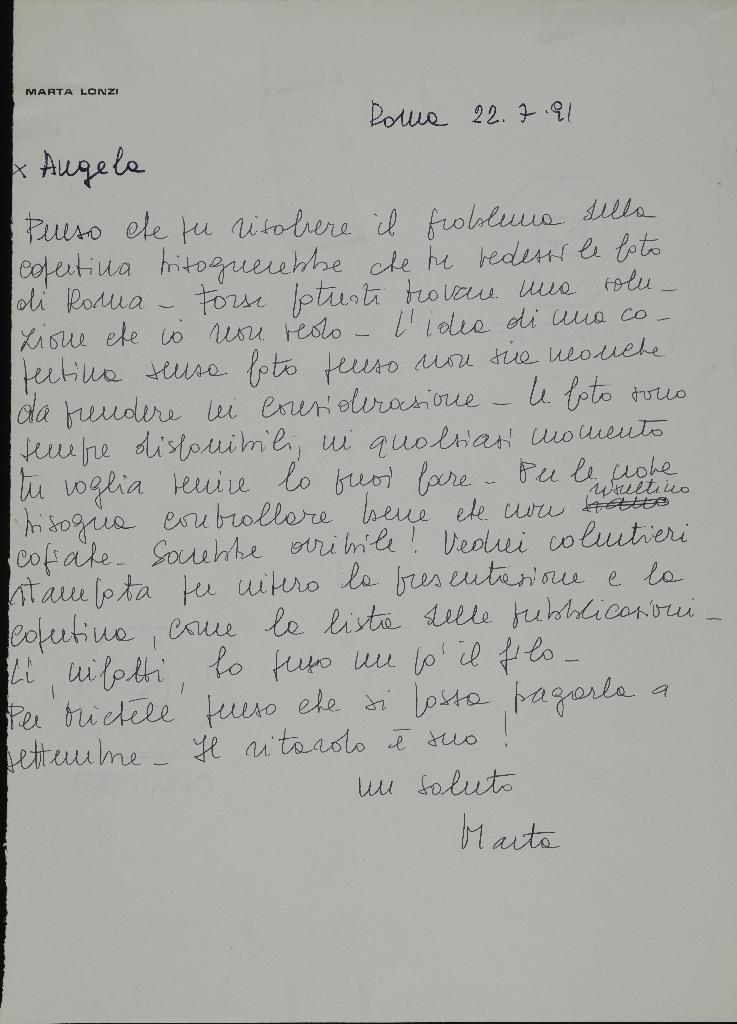 MARTA LONZI
Roma 22.7.91
x Angela
Penso che per risolvere il problema della
copertina bisognerebbe che tu vedessi le foto
di Roma – Forse potresti trovare una solu-
zione che io non vedo – L'idea di una co-
pertina senza foto penso non sia neanche
da prendere in considerazione – Le foto sono
sempre disponibili, in qualsiasi momento
tu voglia venire lo puoi fare – Per le note
bisogna controllare bene che non risultino
copiate – Sarebbe orribile! Vedrei volentieri
stampata per intero la presentazione e la
copertina, come la lista delle pubblicazioni –
Lì, infatti, ho perso un po' il filo –
Per Michèle penso che si possa pagarla a
settembre – Il ritardo è suo!
un saluto
Marta